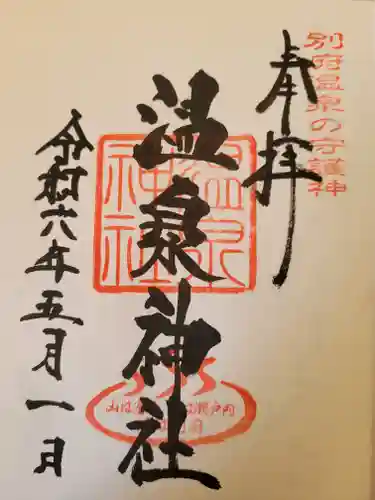 別府温泉の守護神
奉拝
温泉神社
温泉神社
令和六年五月一日